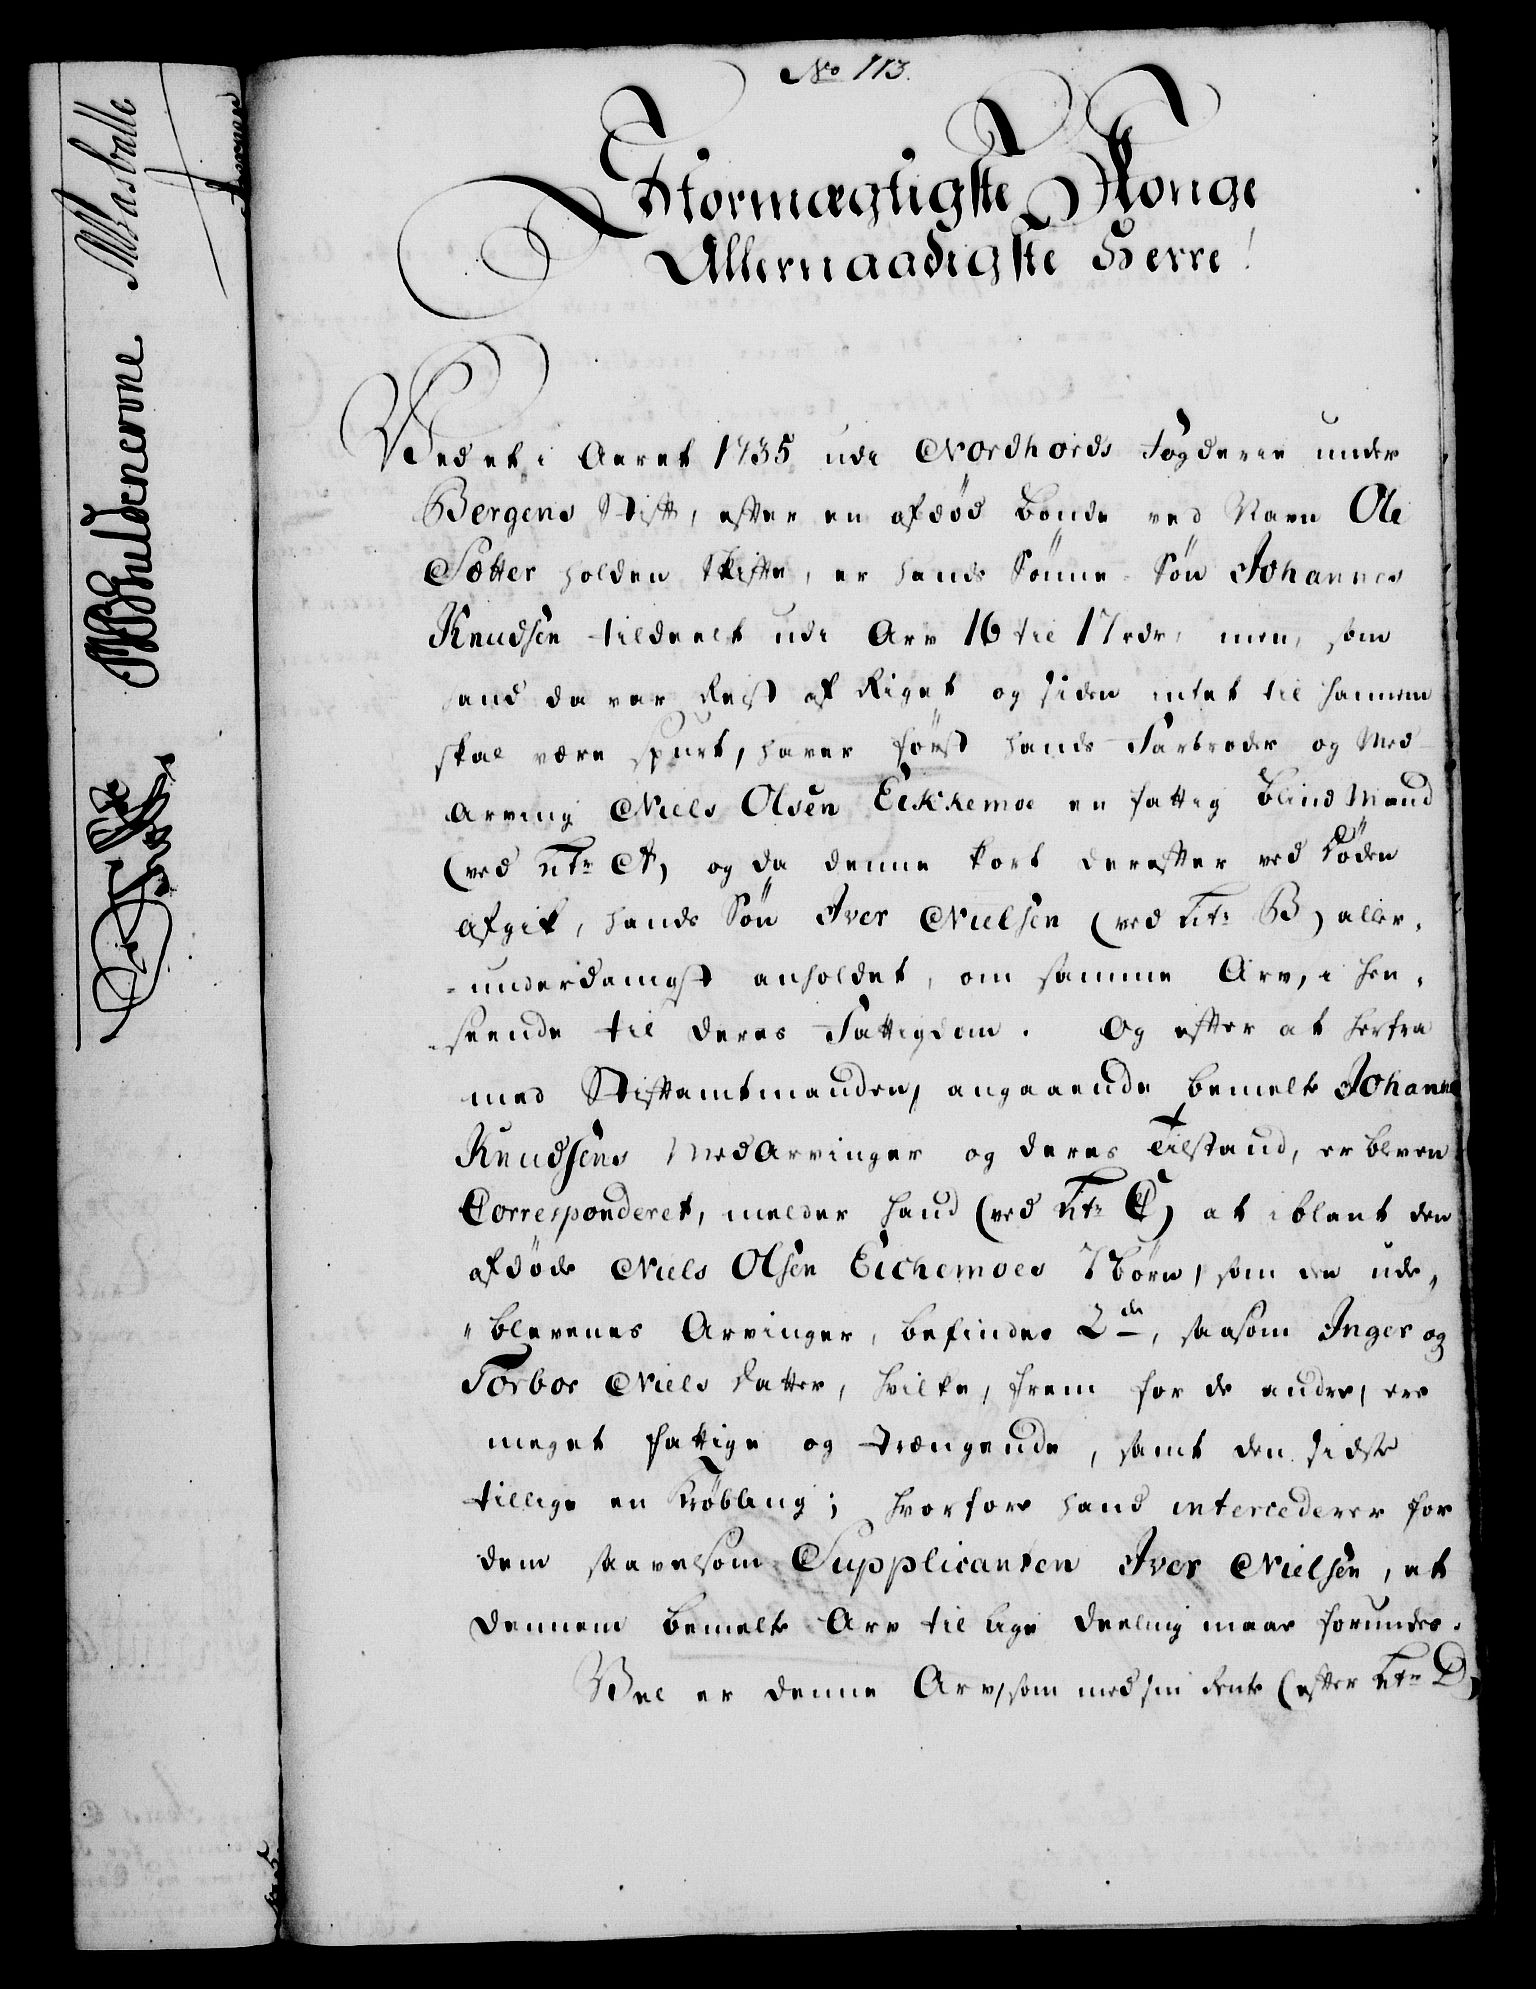 No 113.
Stormægtigste Konge
Allernaadigste Herre!
Ved et i Aaret 1735 udi Nordhords Fogderie under
Bergens Stift, efter en afdöd Bonde ved Navn Ole
Sætter holden Skifte, er hands Sönne-Sön Johannes
Knudsen tildeelt udi Arv 16 til 17 rdr, men, som
hand da var Reist af Riget og siden intet til hannem
skal være spurt, haver först hands Farbroder og Med-
Arving Niels Olsen Eikkemoe en fattig Blind Mand
(ved Ltr A) og da denne kort derefter ved Döden
afgik, hands Sön Iver Nielsen (ved Ltr B) aller-
-underdanigst anholdet, om samme Arv, i Hen-
-seende til deres Fattigdom. Og efter at herfra
med Stiftamtmanden, angaaende bemelte Johannes
Knudsens MedArvinger og deres Tilstand, er bleven
Corresponderet, melder hand (ved Ltr C) at iblant den
afdöde Niels Olsen Eichemoes 7 Börn, som den ude-
-blevenes Arvinger, befindes 2de, saasom Inger og
Torboe Niels Datter, hvilke, frem for de andre, ere
meget fattige og trængende, samt den sidste
tillige en Kröbling; hvorfore hand intercederer for
dem saavelsom Supplicanten Iver Nielsen, at
dennem bemelte Arv til lige deeling maae forundes.
Vel er denne Arv, som med sin Rente (efter Ltr D)
Masballe
Guldencrone